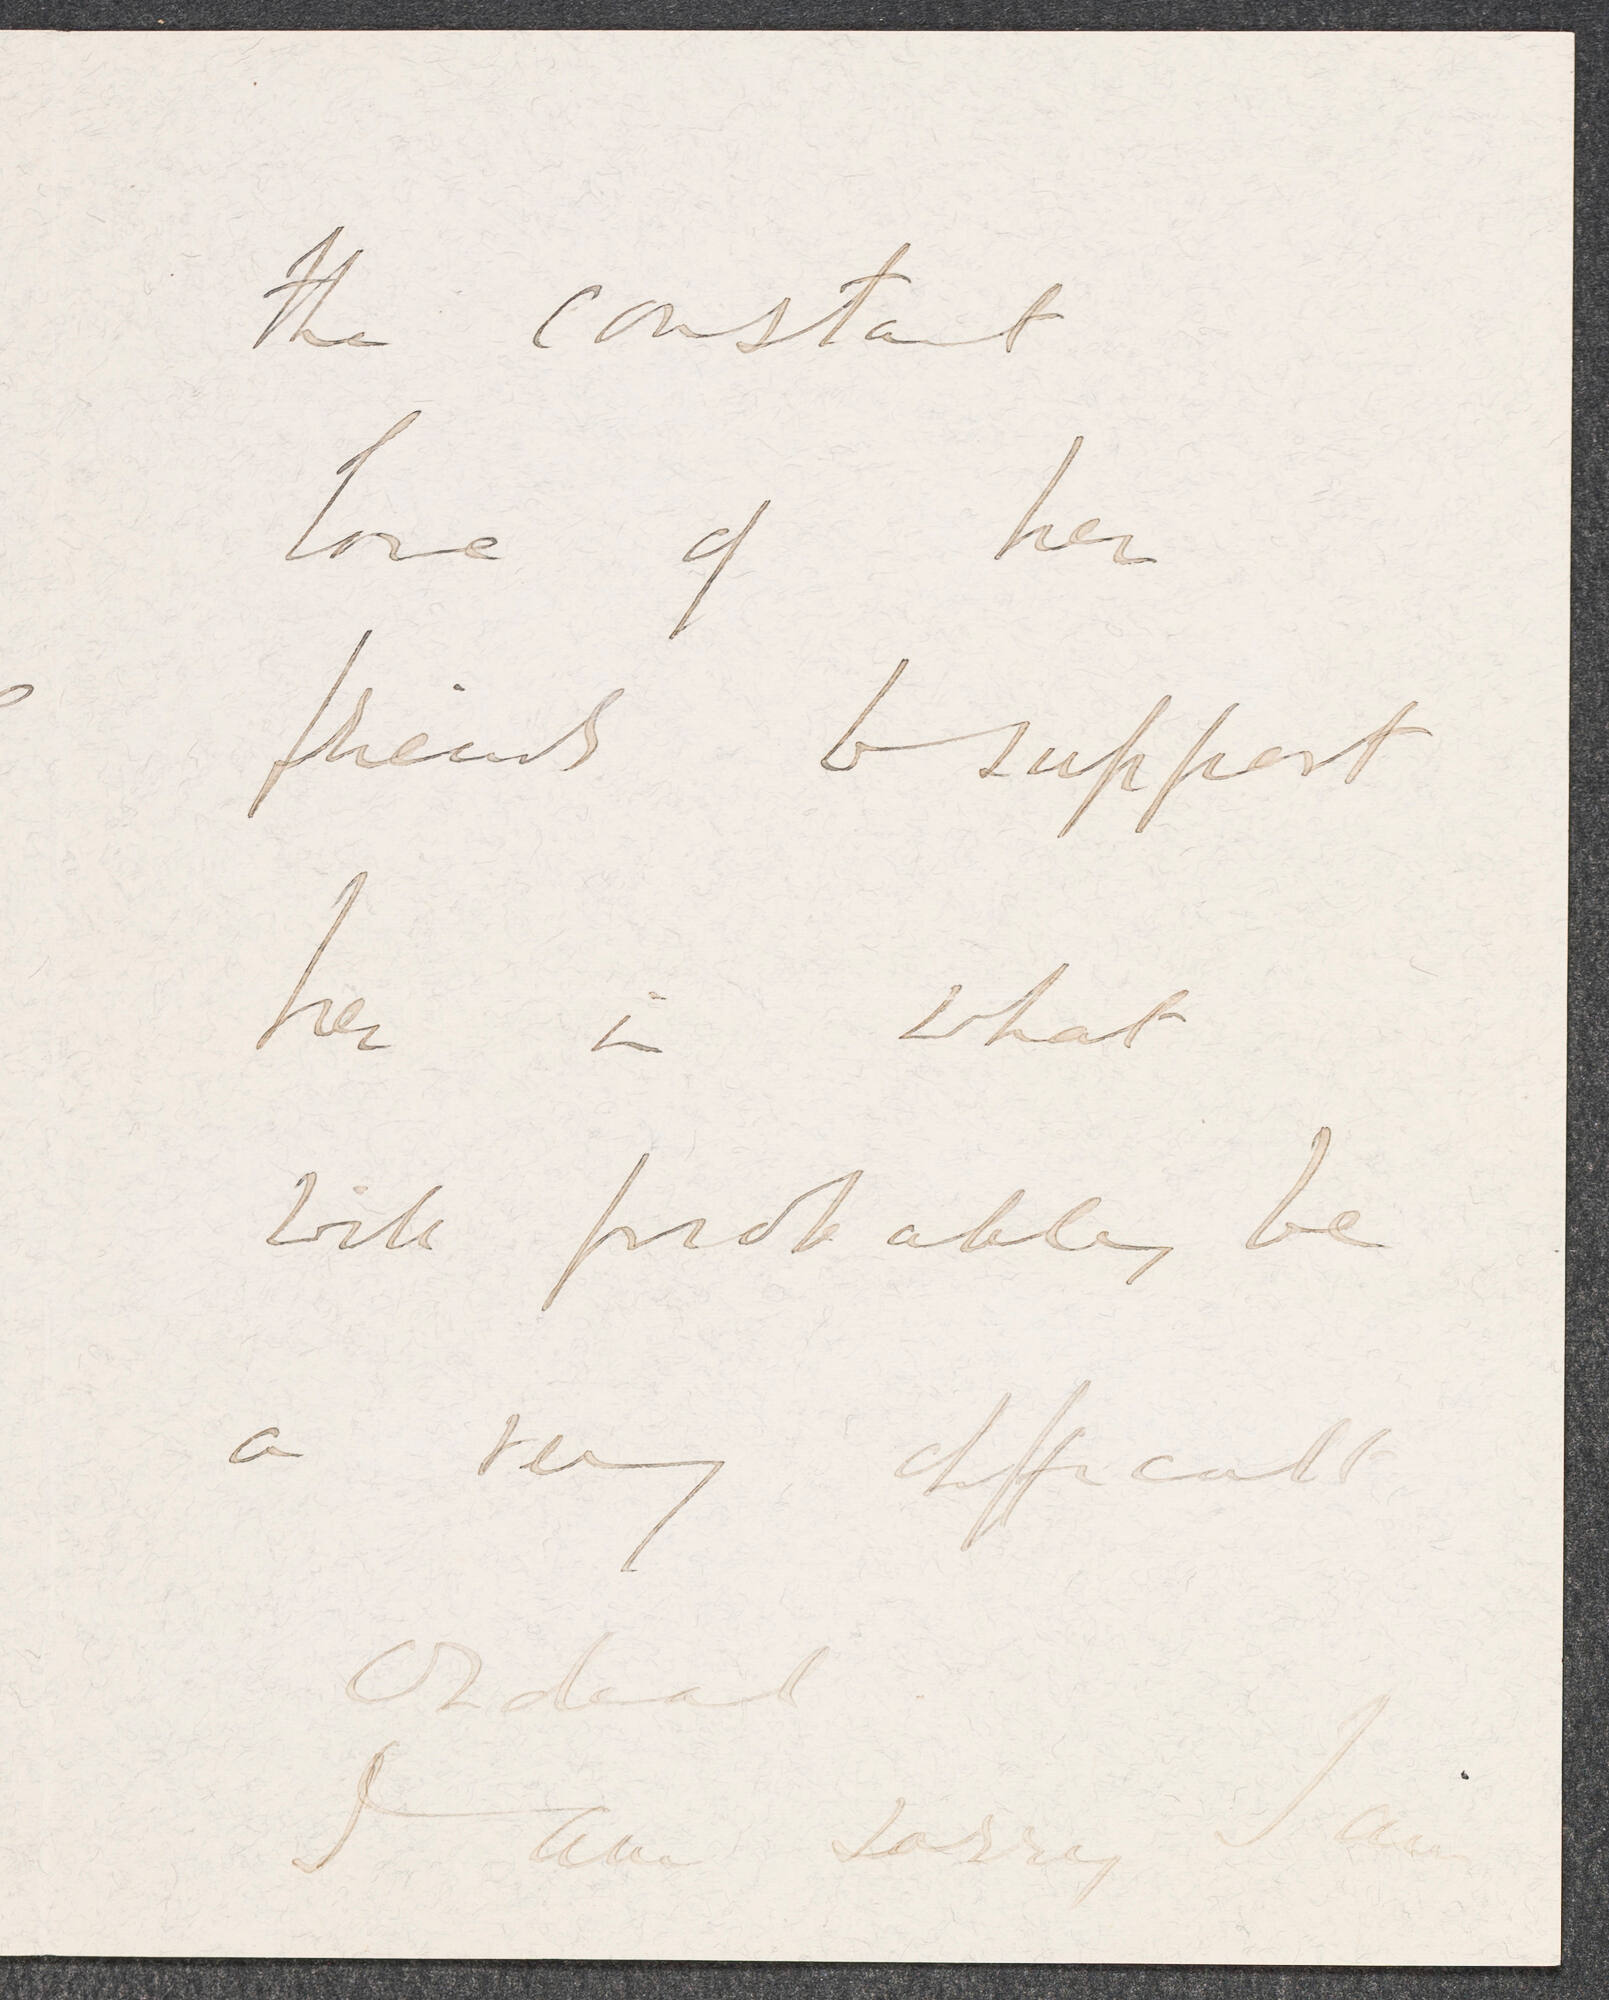 the constant
love of her
friends to support
her in what
will probably be
a very difficult
ordeal
I am sorry I am